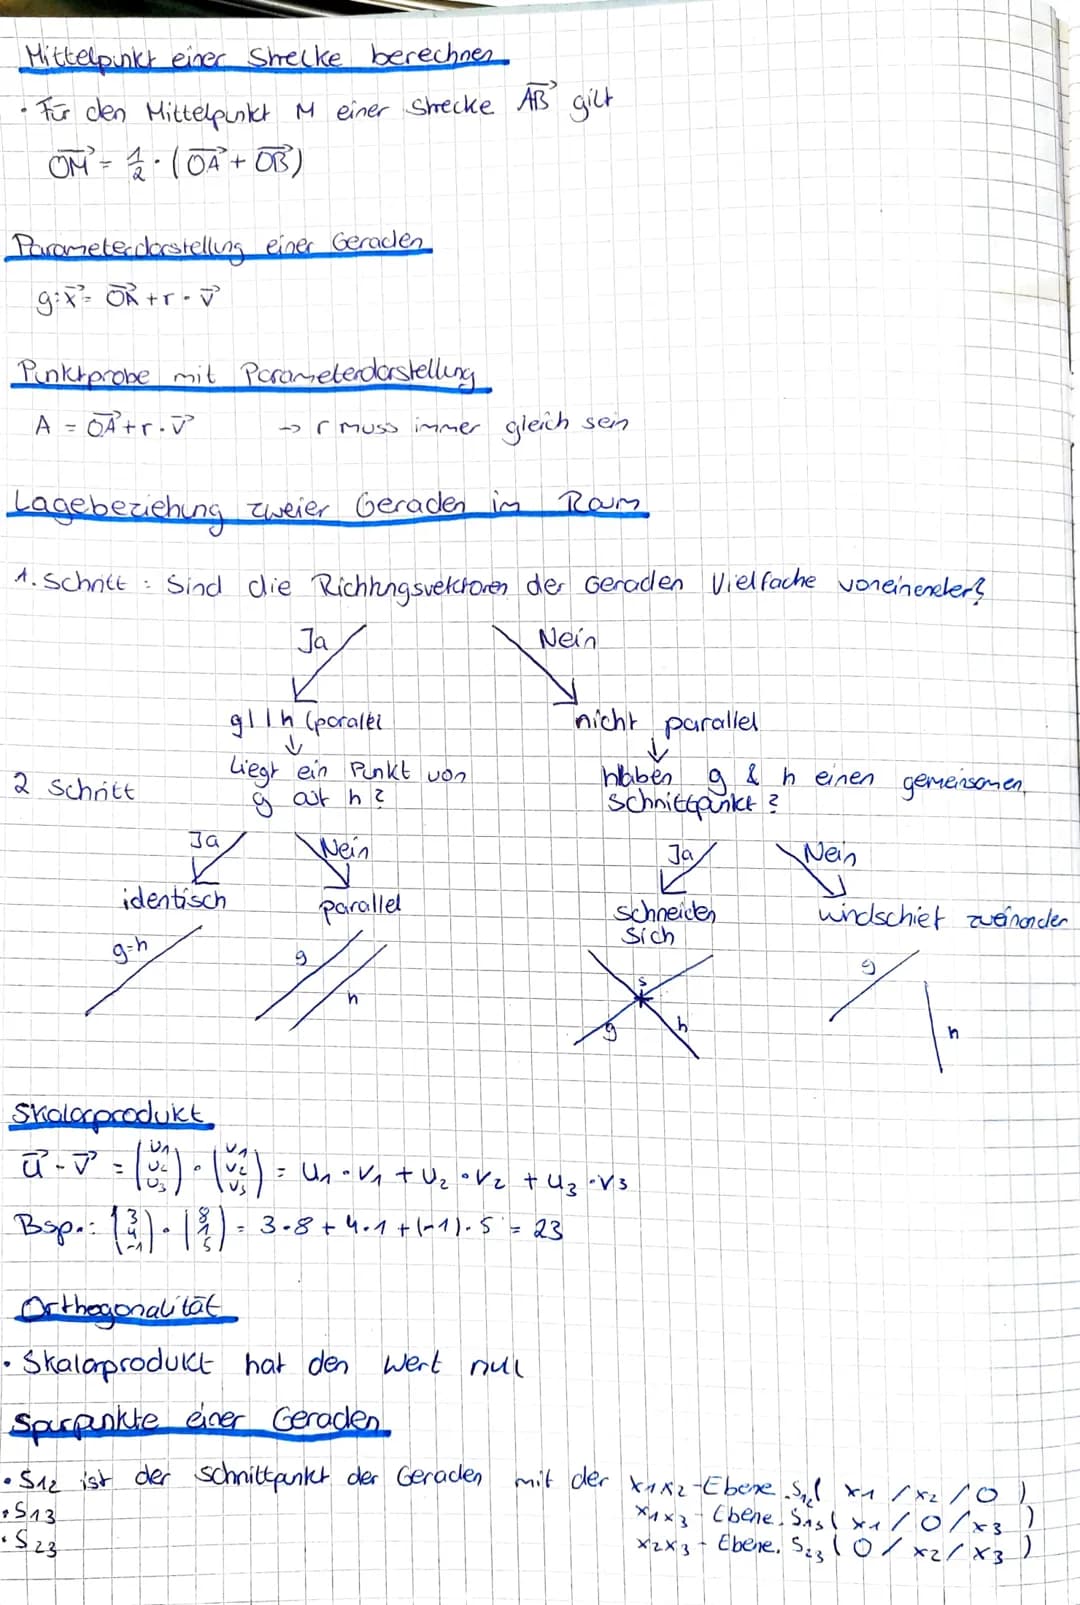 Mittelpunkt einer Strecke berechnen
· Für den Mittelpunkt M einer Strecke AB→ gilt
OM→ = 1/2 · (OA→ + OB→)
Parameterdarstellung einer Geraden
g: x→ = OA→ + r · v→
Punktprobe mit Parameterdarstellung
A = OA→ + r · v→ → r muss immer gleich sein
Lagebeziehung zweier Geraden im Raum
1. Schritt : Sind die Richtungsvektoren der Geraden Vielfache voneinander?
Ja Nein
g||h (parallel nicht parallel
↓ ↓
2 Schritt liegt ein Punkt von g auf h ? haben g & h einen gemeinsamen Schnittpunkt ?
Ja Nein Ja Nein
identisch parallel schneiden sich windschief zueinander
g=h g h s g h g h
Skalarprodukt
u→ · v→ = (u1 u2 u3) · (v1 v2 v3) = u1 · v1 + u2 · v2 + u3 · v3
Bsp.: (3 4 -1) · (8 1 5) = 3·8 + 4·1 + (-1)·5 = 23
Orthogonalität
· Skalarprodukt hat den Wert null
Spurpunkte einer Geraden
· S12 ist der Schnittpunkt der Geraden mit der x1x2-Ebene. S12( x1 / x2 / 0 )
· S13 x1x3 - Ebene. S13( x1 / 0 / x3 )
· S23 x2x3 - Ebene. S23( 0 / x2 / x3 )